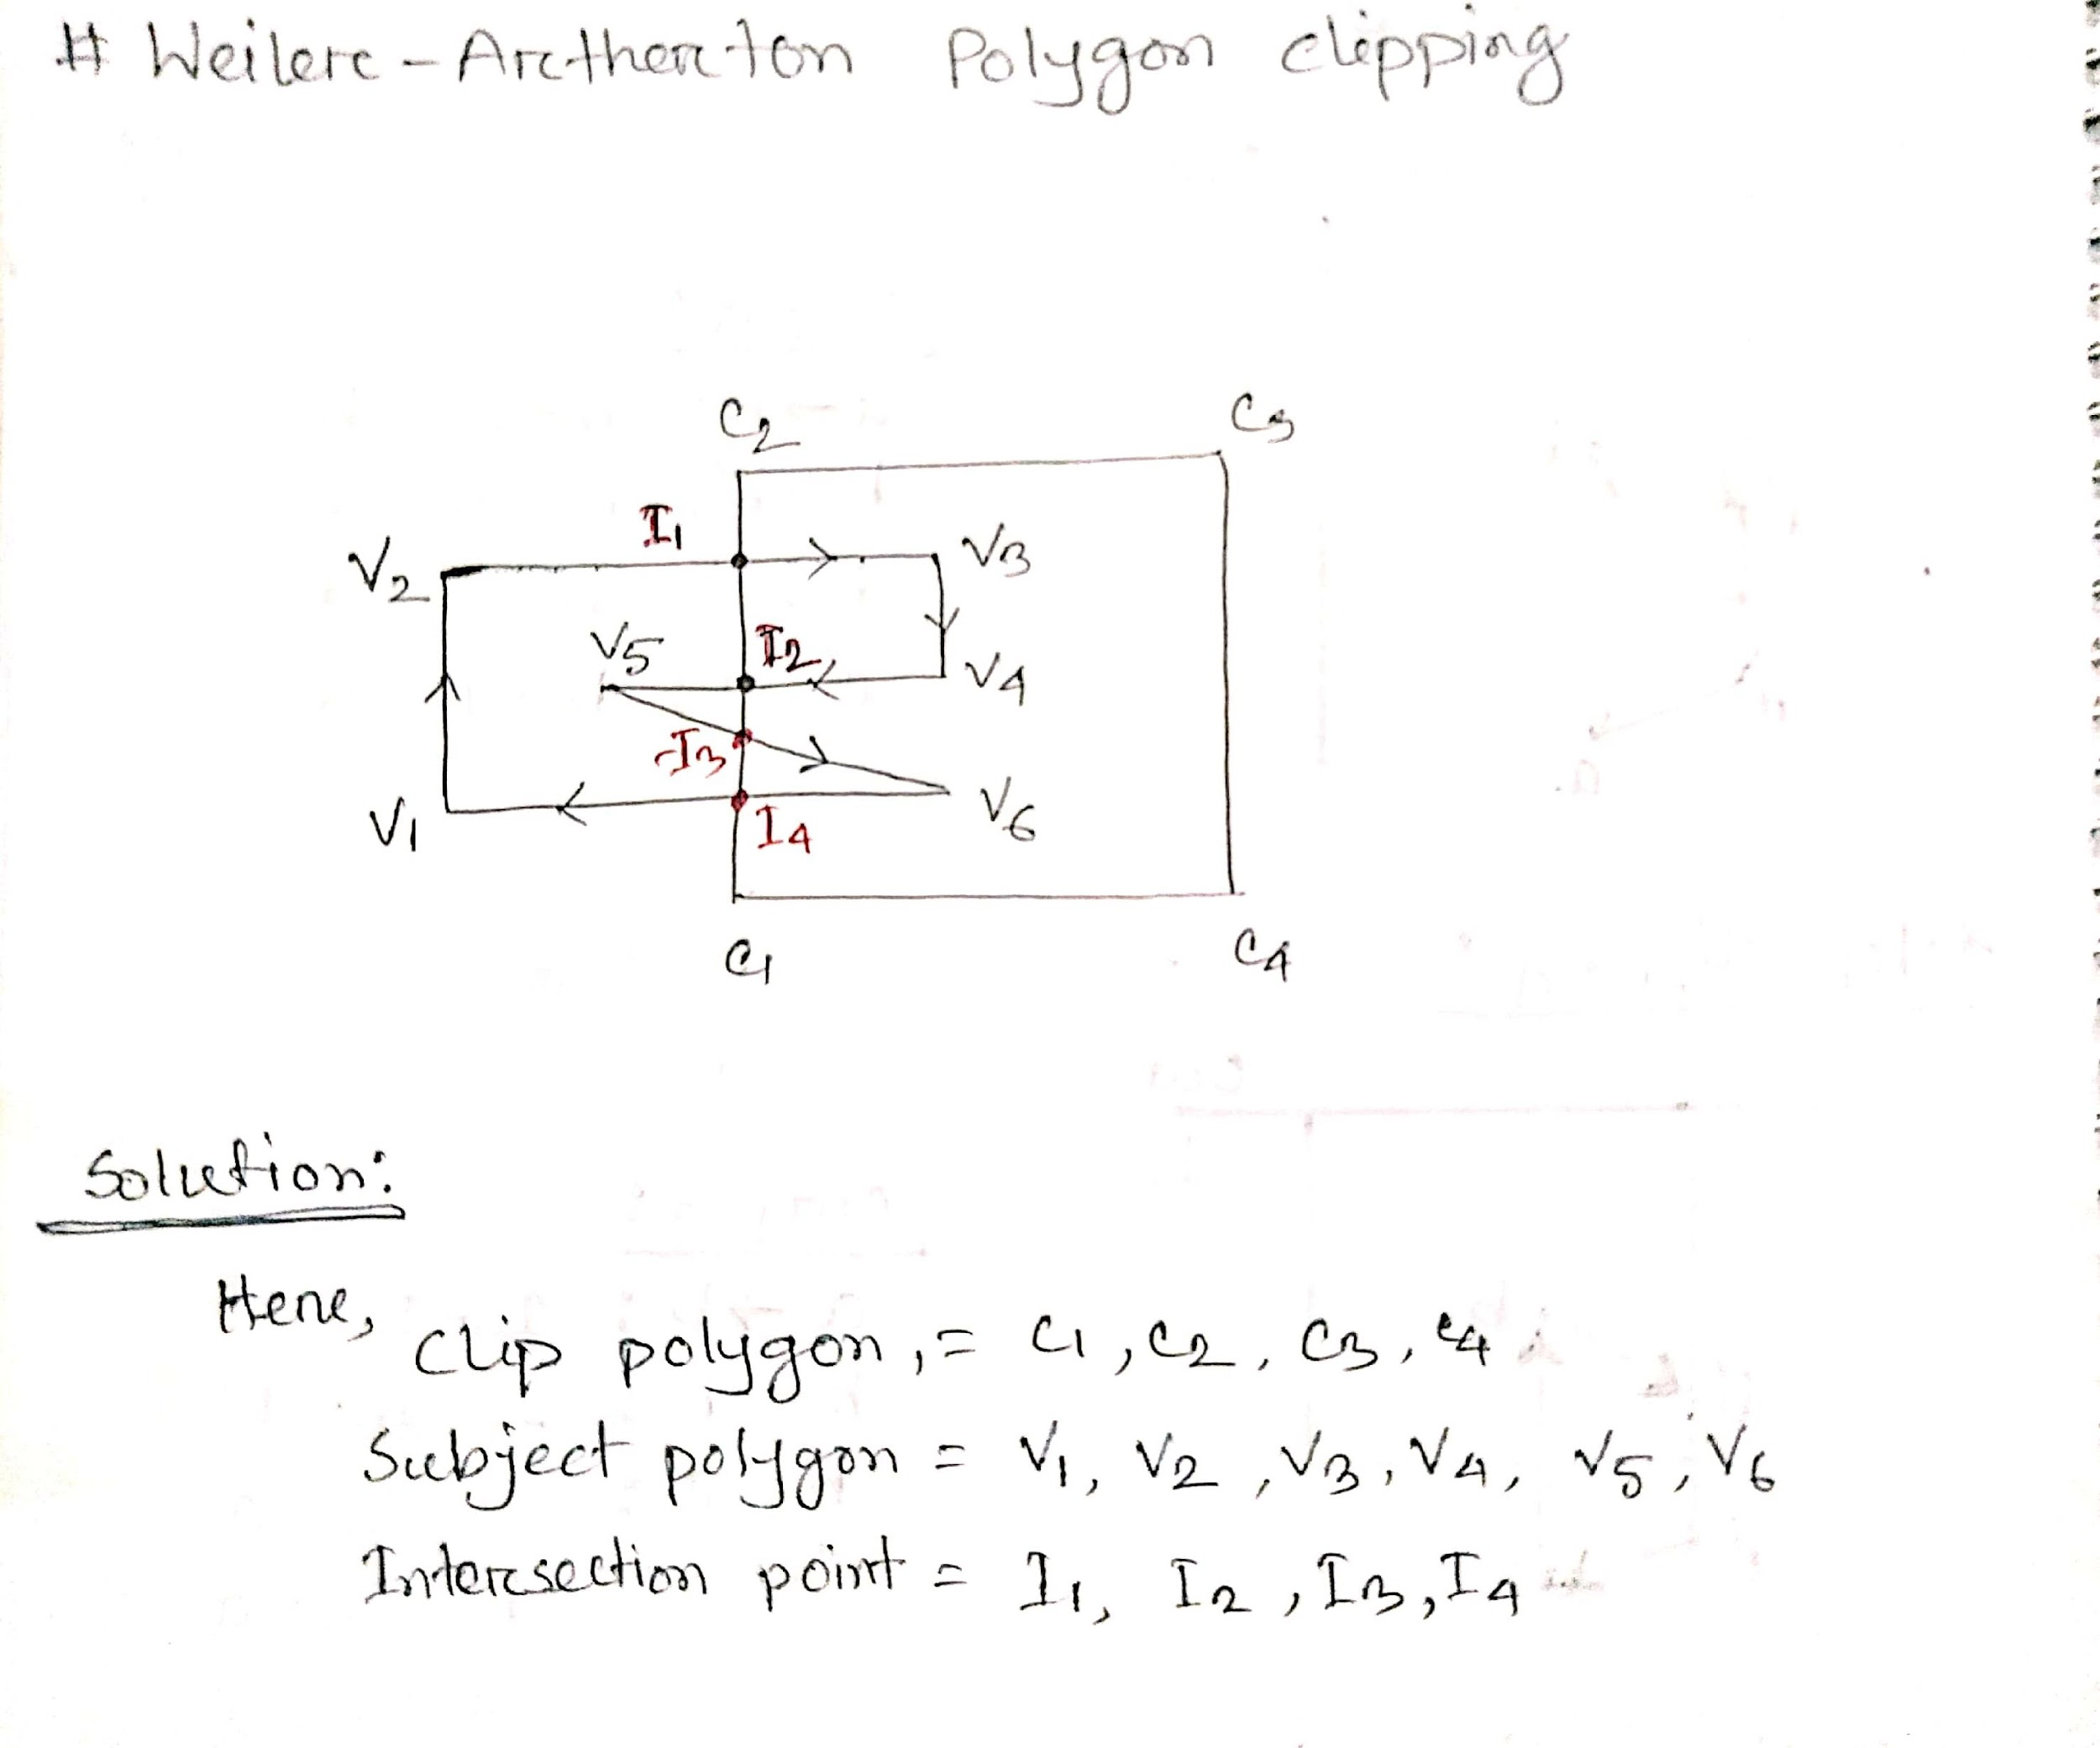 # Weilere-Aretherton Polygon clipping
C2 C3
I1
V2 V3
V5 I2 V4
I3
V1 I4 V6
C1 C4
Solution:
Here,
Clip polygon, = C1, C2, C3, C4
Subject polygon = V1, V2, V3, V4, V5, V6
Intersection point = I1, I2, I3, I4